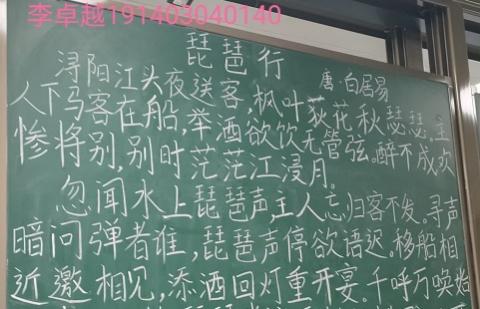 李卓越191403040140
琵琶行
唐·白居易
浔阳江头夜送客,枫叶荻花秋瑟瑟。主
人下马客在船,举酒欲饮无管弦。醉不成欢
惨将别,别时茫茫江浸月。
忽闻水上琵琶声,主人忘归客不发。寻声
暗问弹者谁,琵琶声停欲语迟。移船相
近邀相见,添酒回灯重开宴。千呼万唤始